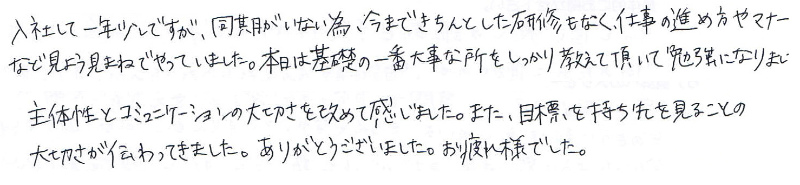 入社して一年少しですが、同期がいない為、今まできちんとした研修もなく、仕事の進め方やマナー
など見よう見まねでやっていました。本日は基礎の一番大事な所をしっかり教えて頂いて勉強になりまし
主体性とコミュニケーションの大切さを改めて感じました。また、目標を持ち先を見ることの
大切さが伝わってきました。ありがとうございました。お疲れ様でした。